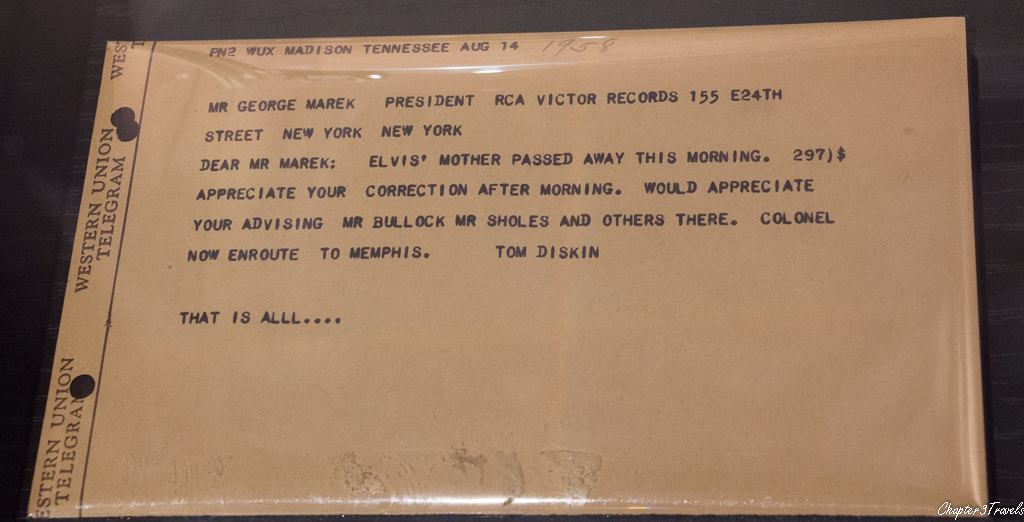 PN2 WUX MADISON TENNESSEE AUG 14 1958
MR GEORGE MAREK PRESIDENT RCA VICTOR RECORDS 155 E24TH
STREET NEW YORK NEW YORK
DEAR MR MAREK: ELVIS' MOTHER PASSED AWAY THIS MORNING. 297)$
APPRECIATE YOUR CORRECTION AFTER MORNING. WOULD APPRECIATE
YOUR ADVISING MR BULLOCK MR SHOLES AND OTHERS THERE. COLONEL
NOW ENROUTE TO MEMPHIS. TOM DISKIN
THAT IS ALLL....
WEST
T
WESTERN UNION
TELEGRAM
ESTERN UNION
TELEGRAM
Chapter3Travels